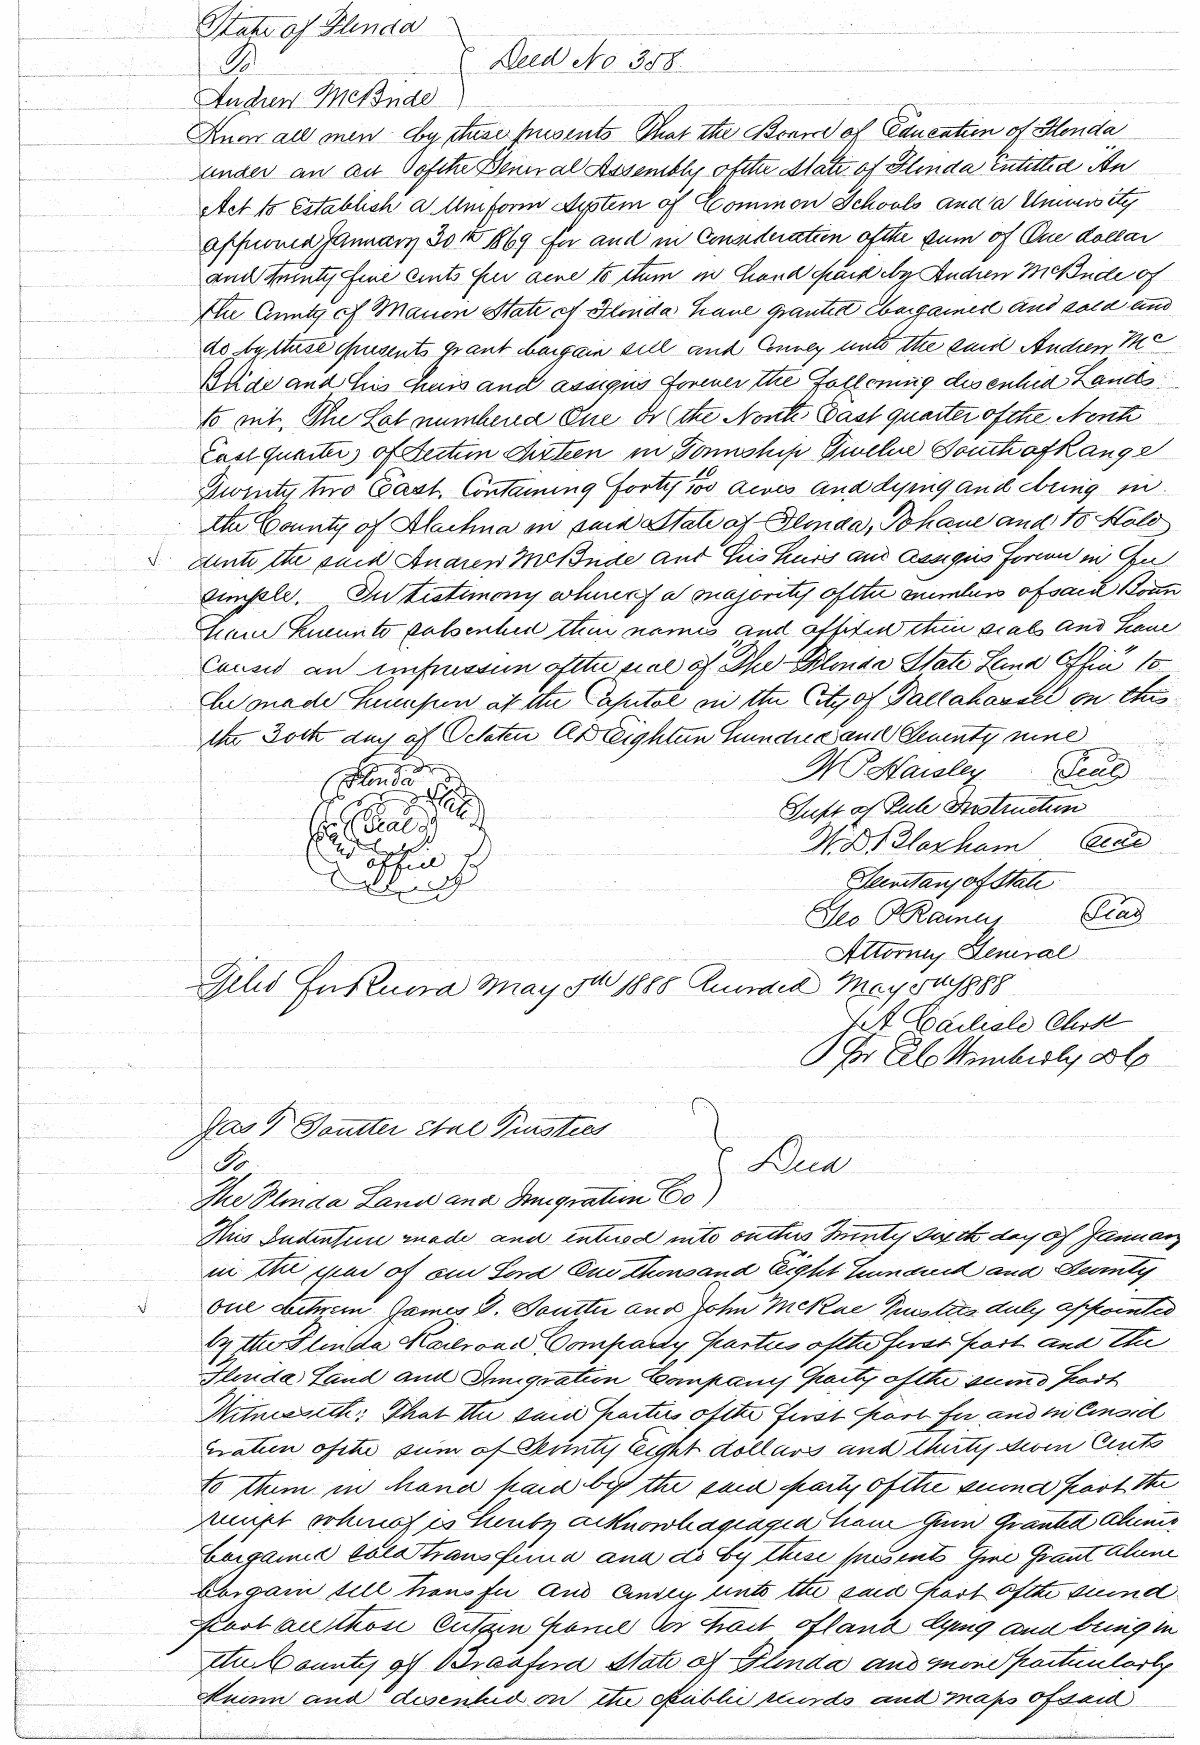 State of Florida
To
Deed No 358.
Andrew McBride
Know all men by these presents That the Board of Education of Florida
under an act of the General Assembly of the State of Florida Entitled "An
Act to Establish a Uniform System of Common Schools and a University
approved January 30th 1869 for and in Consideration of the sum of One dollar
and twenty five cents per acre to them in hand paid by Andrew McBride of
the County of Marion State of Florida have granted bargained and sold and
do by these presents grant bargain sell and Convey unto the said Andrew Mc
Bride and his heirs and assigns forever the following described Lands
to wit, The Lot numbered One or (the North East quarter of the North
East quarter) of Section Sixteen in Township Twelve South of Range
Twenty two East. Containing forty 10/100 acres and lying and being in
the County of Alachua in said State of Florida, To have and to Hold
unto the said Andrew McBride and his heirs and assigns forever in Fee
simple. In testimony whereof a majority of the members of said Board
have hereunto subscribed their names and affixed their seals and have
Caused an impression of the seal of "The Florida State Land Office" to
be made hereupon at the Capitol in the City of Tallahassee on this
the 30th day of October AD Eighteen hundred and Seventy nine
W P Haisley Seal
Florida State Land office Seal
Supt of Pub Instruction
W. D. Bloxham Seal
Secretary of State
Geo P Raney Seal
Attorney General
Filed for Record May 5th 1888 Recorded May 5th 1888
J A Carlisle Clerk
for Wimberly DC
Jas T Soutter et al Trustees
To
Deed
The Florida Land and Imigration Co
This Indenture made and entered into on this Twenty Sixth day of January
in the year of our Lord One thousand Eight hundred and Seventy
one between James T. Soutter and John McRae Trustees duly appointed
by the Florida Railroad Company parties of the first part and the
Florida Land and Imigration Company party of the second part
Witnesseth; That the said parties of the first part for and in Consid
eration of the sum of Twenty Eight dollars and thirty seven Cents
to them in hand paid by the said party of the second part the
receipt whereof is hereby acknowledgedged have Given Granted aliened
bargained sold transferred and do by these presents Give Grant aliene
bargain sell transfer and convey unto the said part of the second
part all those Certain parcel or tract of land lying and being in
the County of Bradford State of Florida and more particularly
known and described on the public records and maps of said